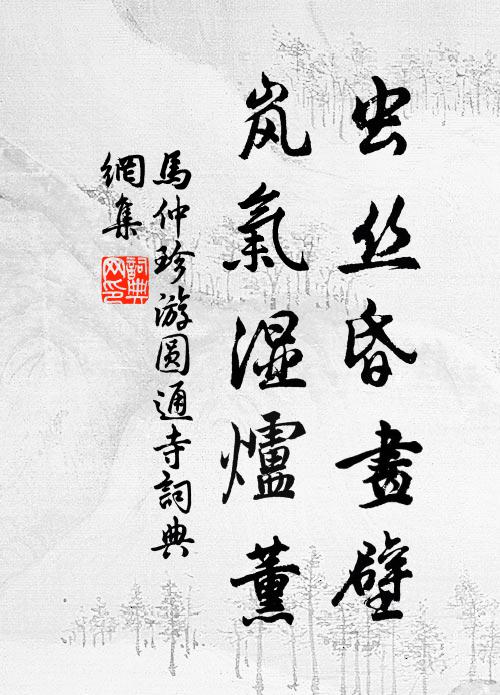 虫丝昏畫壁
岚氣湿爐薰
馬仲珍游圆通寺詞典
網集
詞典网印